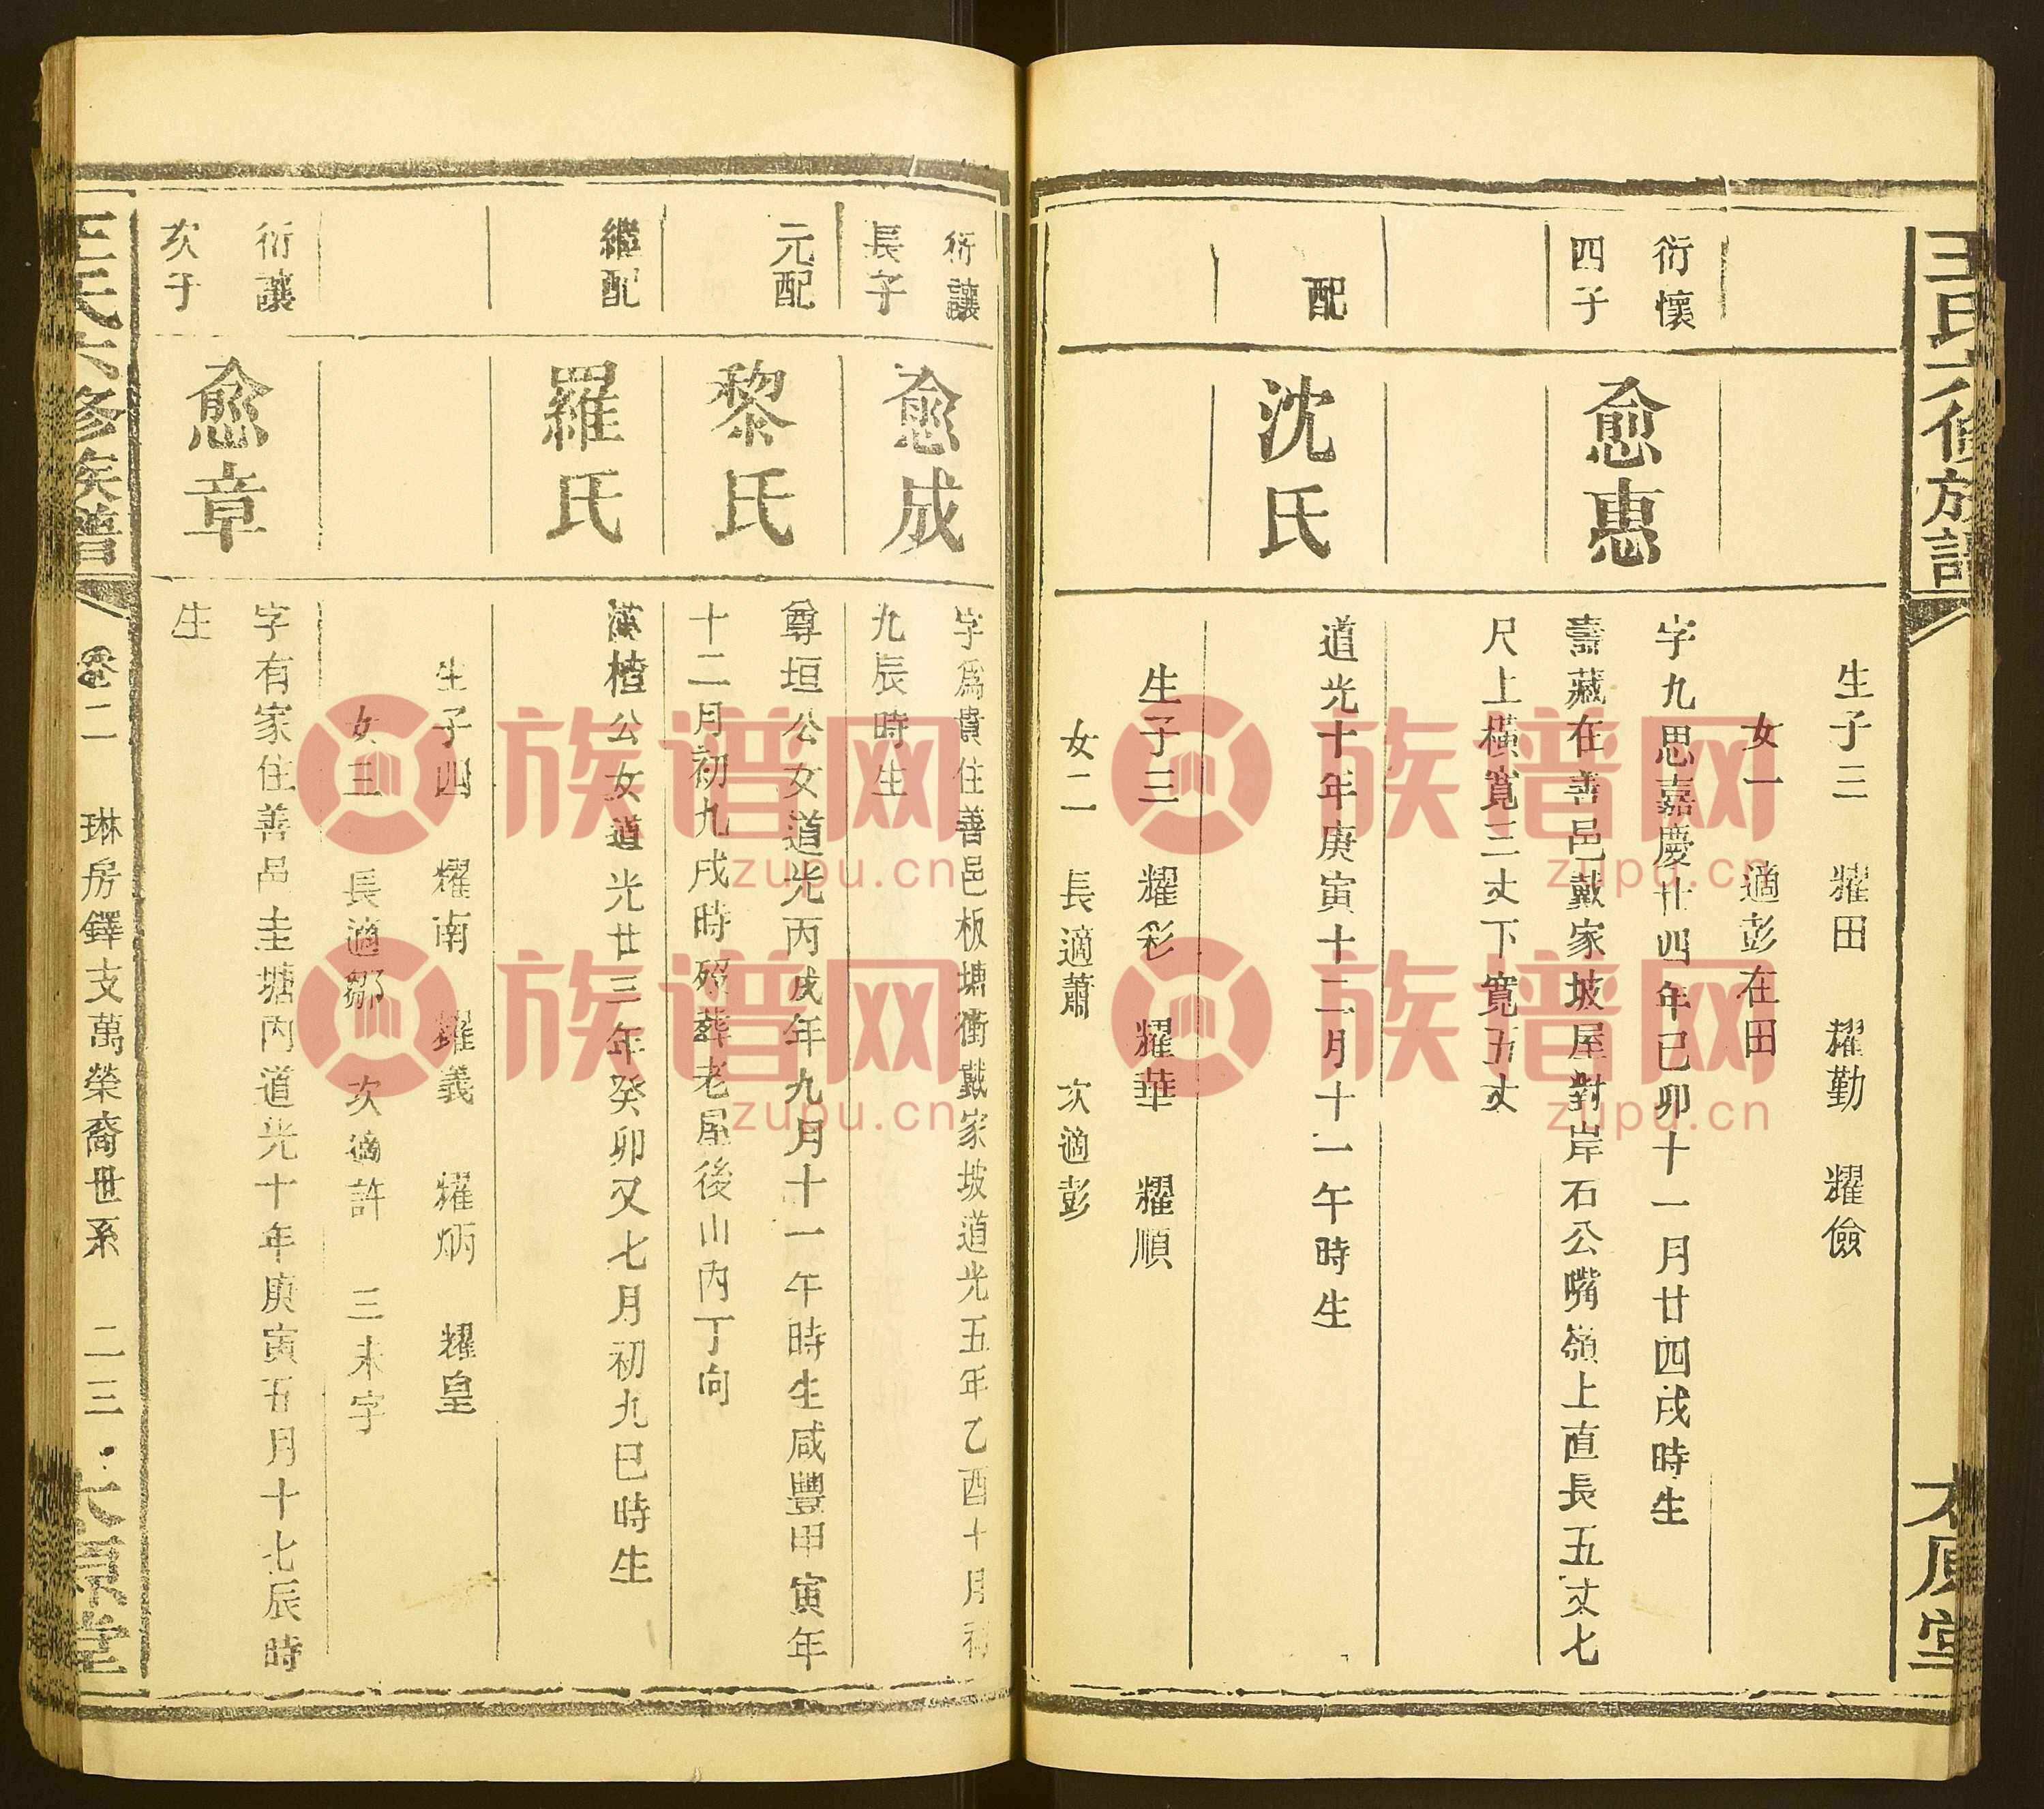 王氏六修族譜
太原堂
生子三 耀田 耀勤 耀儉
女一 適彭在田
衍懷
四子
愈惠
字九思嘉慶廿四年己卯十一月廿四戌時生
壽藏在善邑戴家坡屋對岸石公嘴嶺上直長五丈七
尺上橫寬三丈下寬五丈
配
沈氏
道光十年庚寅十二月十一午時生
生子三 耀彩 耀華 耀順
女二 長適蕭 次適彭
衍讓
長子
愈成
字為貴住善邑板塘衝戴家坡道光五年乙酉十月初
九辰時生
元配
黎氏
尊垣公女道光丙戌年九月十一午時生咸豐甲寅年
十二月初九戌時歿葬老屋後山丙丁向
繼配
羅氏
漢楂公女道光廿三年癸卯又七月初九巳時生
生子四 耀南 耀義 耀炳 耀皇
女三 長適鄒 次適許 三未字
衍讓
次子
愈章
字有家住善邑圭塘內道光十年庚寅五月十七辰時
生
王氏六修族譜
卷二 琳房鐸支萬榮裔世系 二三
太原堂
族谱网
zupu.cn
族谱网
zupu.cn
族谱网
zupu.cn
族谱网
zupu.cn